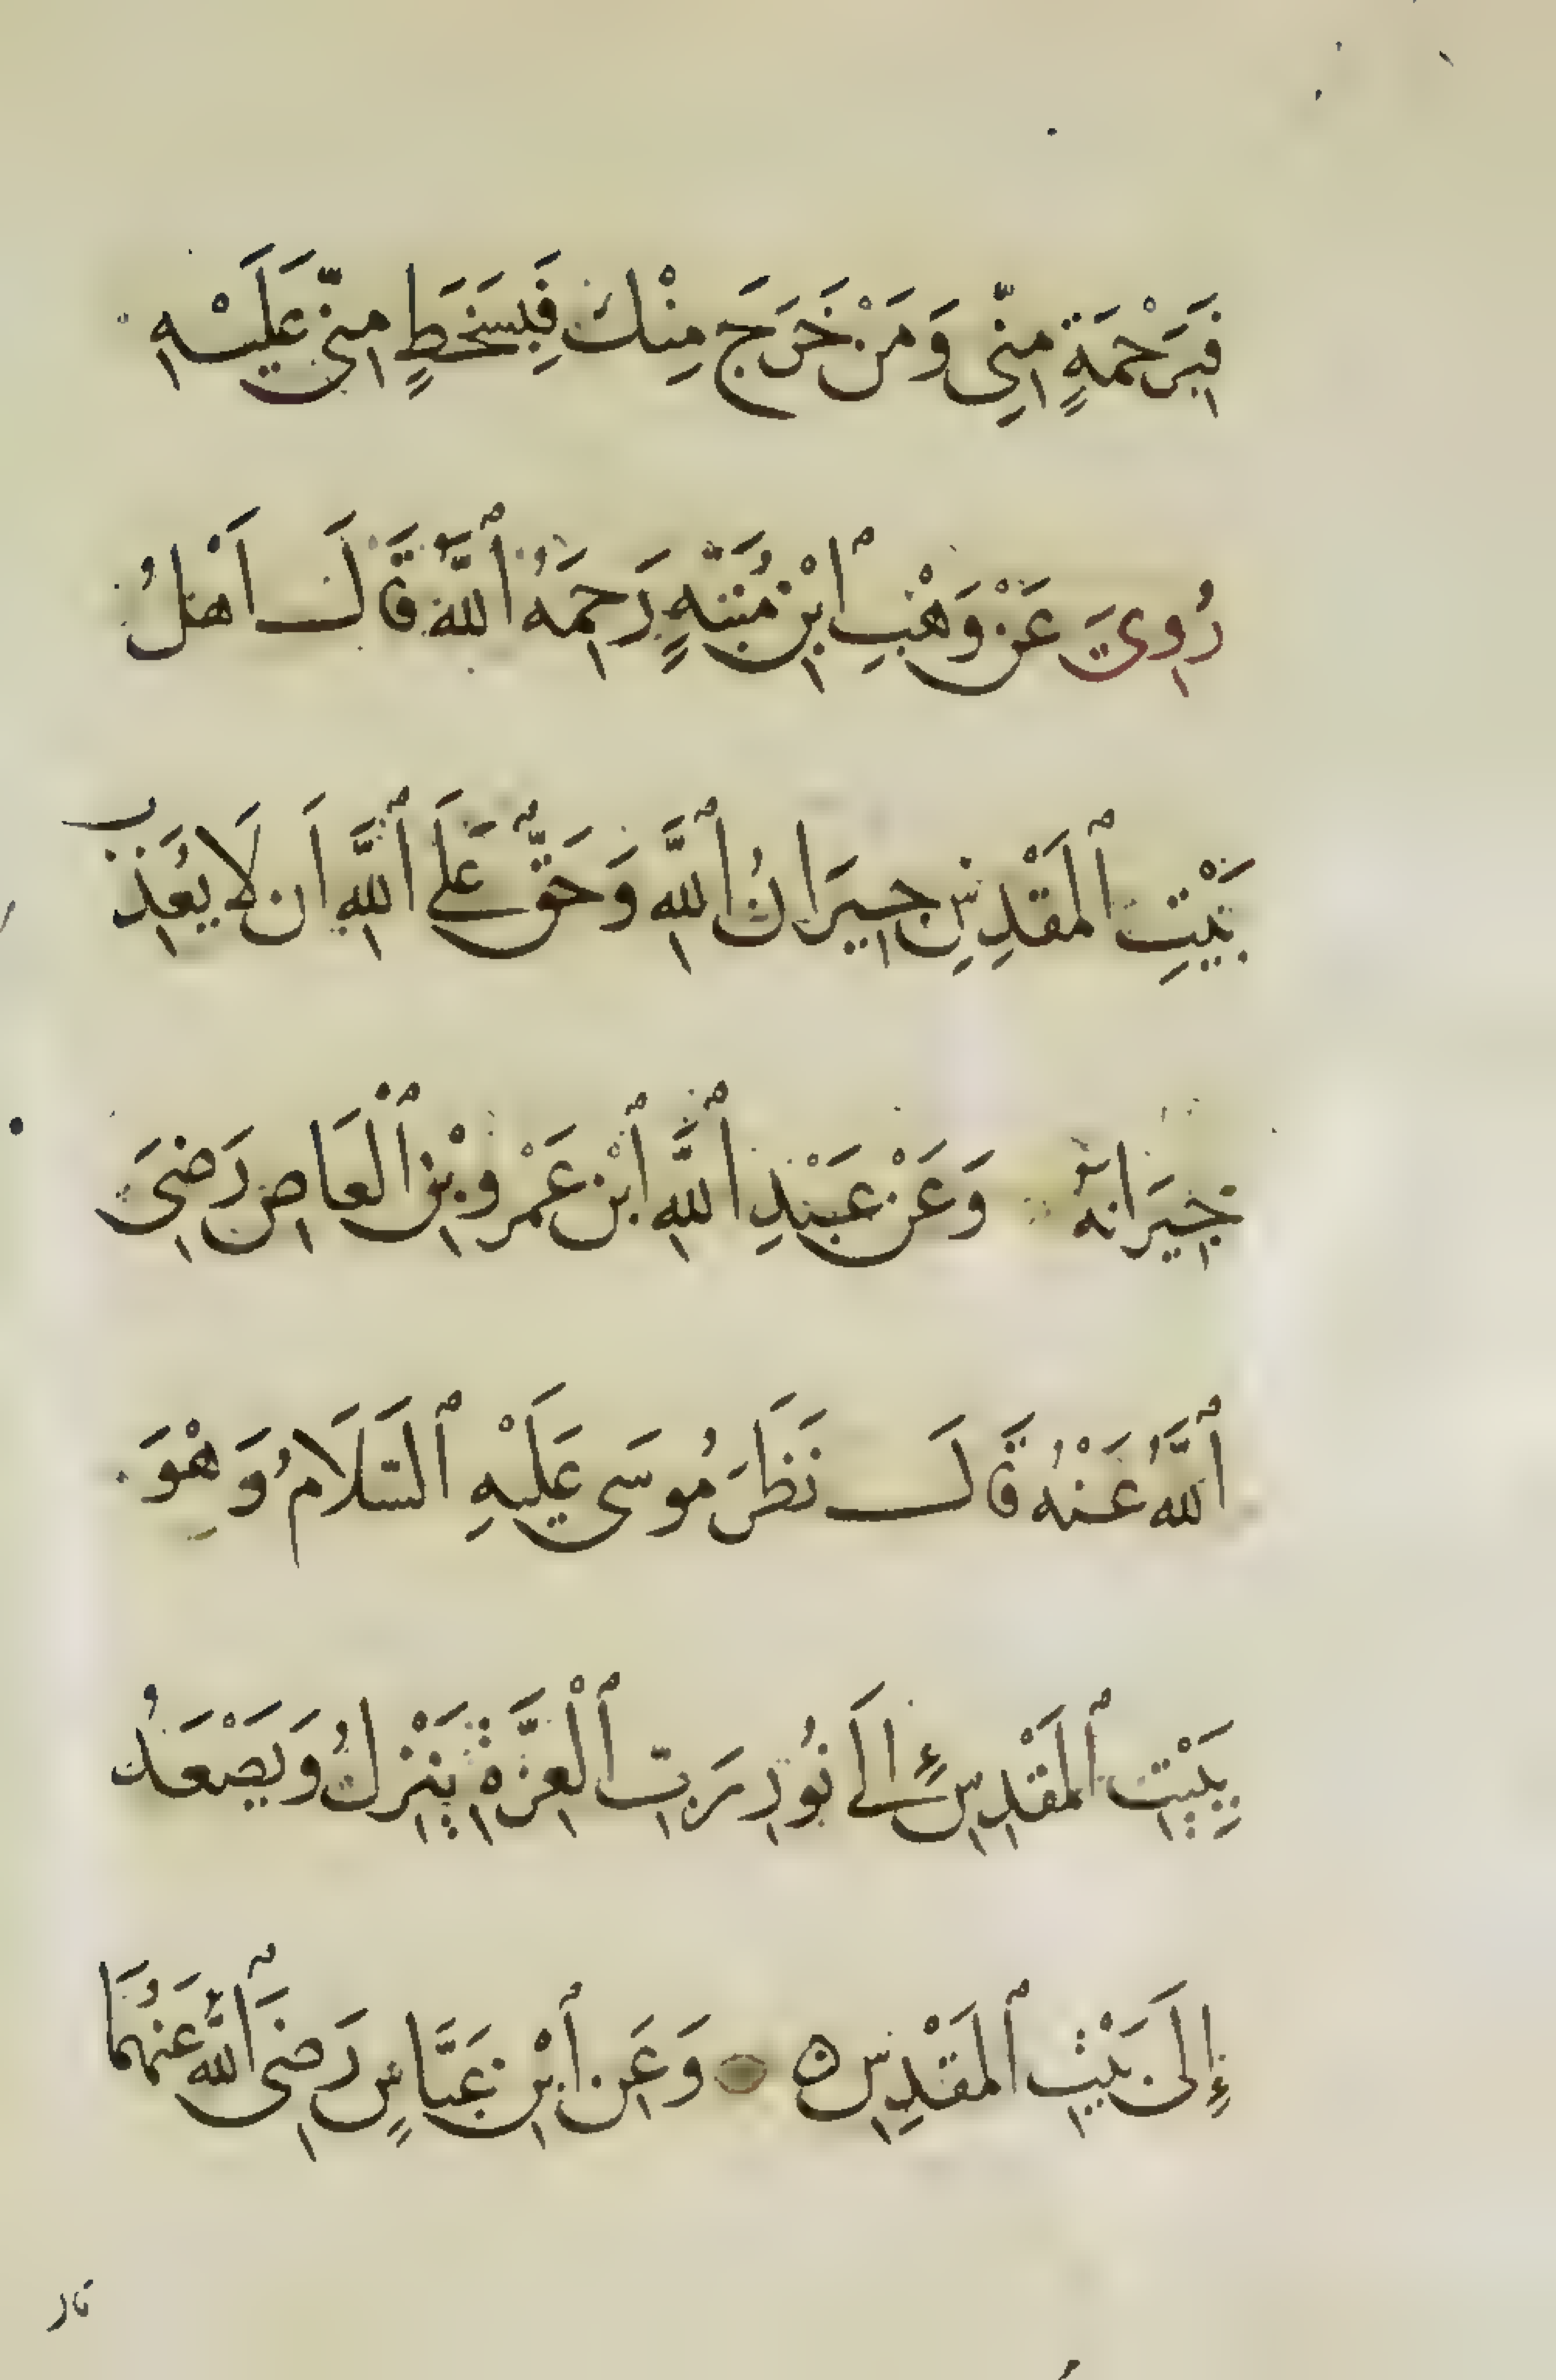 فَبِرَحْمَةٍ مِنِّي وَمَنْ خَرَجَ مِنْكَ فَبِسَخَطٍ مِنِّي عَلَيْهِ
رُوِيَ عَنْ وَهْبِ ٱبْنِ مُنَبِّهٍ رَحِمَهُ ٱللَّهُ قَالَ أَهْلُ
بَيْتِ ٱلْمَقْدِسِ جِيرَانُ ٱللَّهِ وَحَقٌّ عَلَى ٱللَّهِ أَن لَا يُعَذِّبَ
جِيرَانَهُ وَعَنْ عَبْدِ ٱللَّهِ ٱبْنِ عَمْرِو بْنِ ٱلْعَاصِ رَضِيَ
ٱللَّهُ عَنْهُ قَالَ نَظَرَ مُوسَى عَلَيْهِ ٱلسَّلَامُ وَهْوَ
بِبَيْتِ ٱلْمَقْدِسِ إِلَى نُورِ رَبِّ ٱلْعِزَّةِ يَنْزِلُ وَيَصْعَدُ
إِلَى بَيْتِ ٱلْمَقْدِسِ ه وَعَنِ ٱبْنِ عَبَّاسٍ رَضِيَ ٱللَّهُ عَنْهُمَا